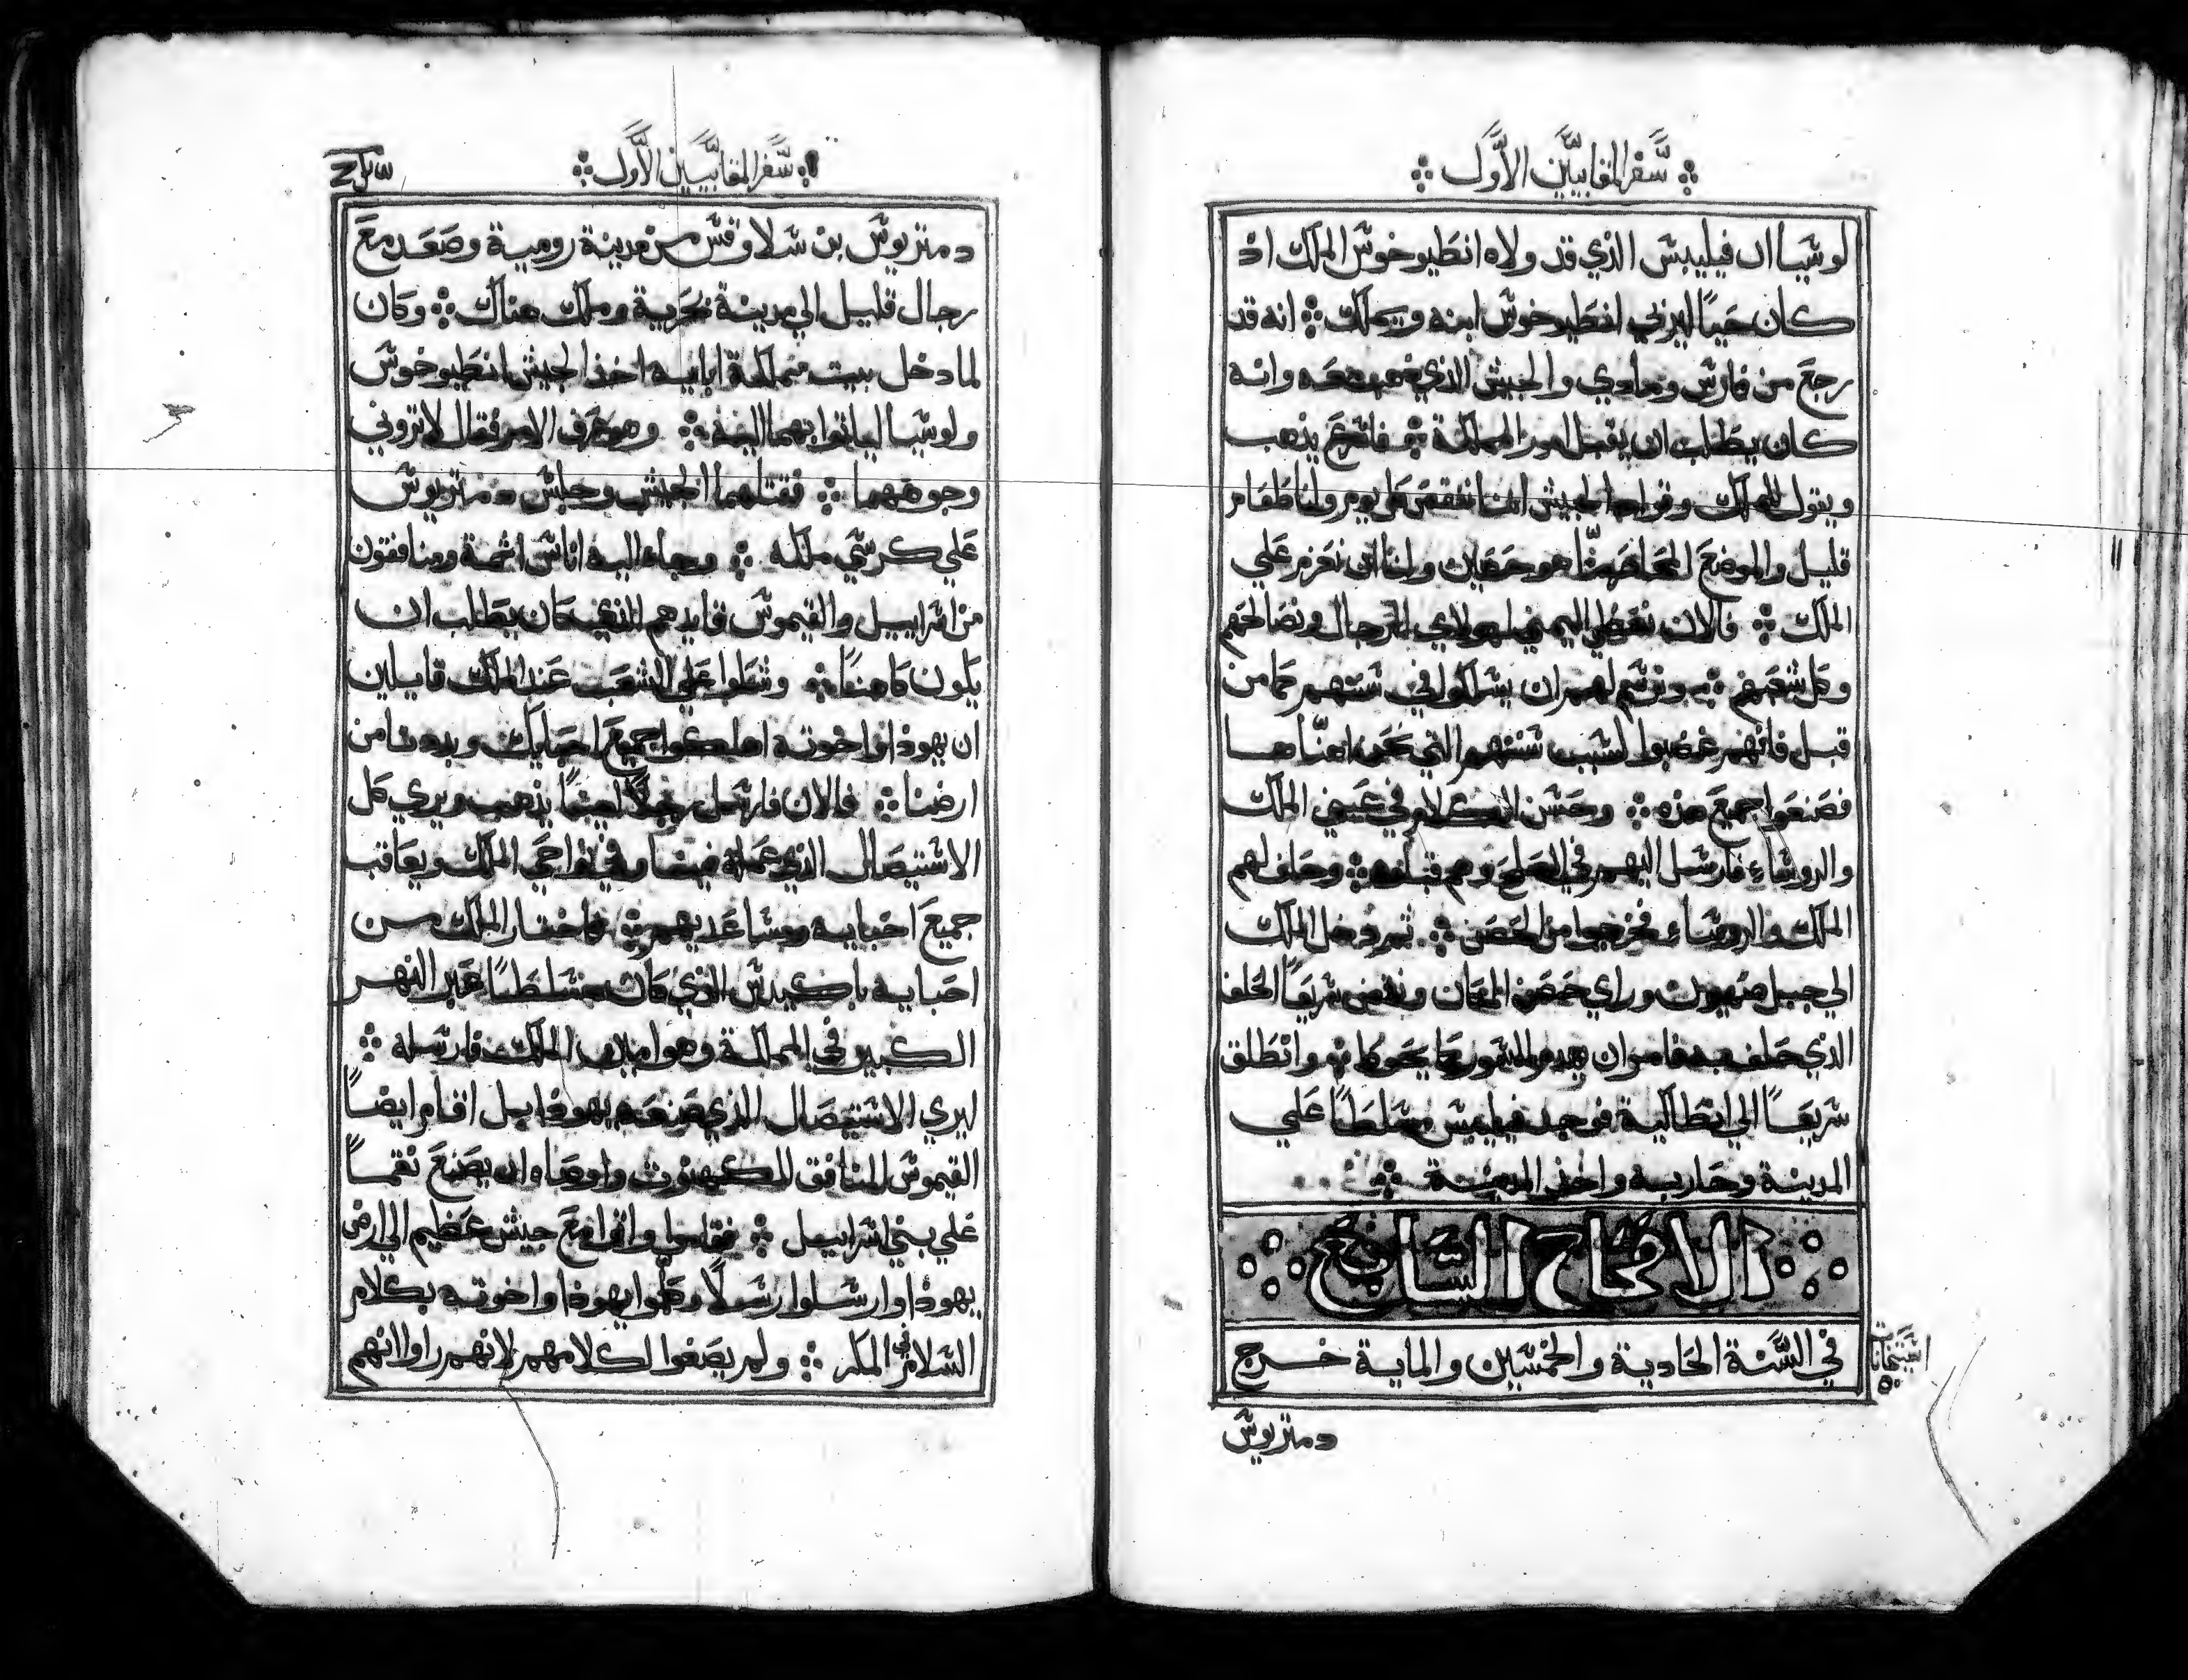 سفر المقابيين الأول
لوشيا ان فيليبس الذي قد ولاه انطيوخوش الملك اذ
كان حيًا ليربي انطيوخوش ابنه ويملك انه قد
رجع من فارس ومادي والجيش الذي معه وانه
كان يطلب ان يقبل امور المملكة يذهب
ويقول للملك الجيش اننا ننقص كل يوم ولنا طعام
قليل والموضع هو حصين ولنا ان نعزم علي
الملك فالان نعطي اليمين لهولاي الرجال ونصالحهم
وكل شعبهم ونرسم لهم ان يسلكوا في سننهم كما من
قبل فانهم غضبوا لسبب سننهم التي
فصنعوا جميع هذه وحسن الكلام في عيني الملك
والروساء فارسل اليهم في الصلح وهم قبلوه وحلف لهم
الملك والروساء فخرجوا من الحصن ثم دخل الملك
الي جبل صهيون وراي حصن المكان ونقض سريعًا الحلف
الذي حلف به فامر ان يهدم السور كما يحوط وانطلق
سريعًا الي انطاكية فوجد فيليبس مسلطًا علي
المدينة وحاربه واخذ المدينة
الافتتاح السابع
في السَّنة الحادية والخمسين والماية خرج
دمتريوش
سفر المقابيين الأول
دمتريوش بن شلاوقس من مدينة رومية وصعد مع
رجال قليل الي مدينة بحرية وملك هناك وكان
لما دخل بيت مملكة ابايه اخذ الجيش انطيوخوش
ولوشيا لياتوا بهما اليه وهو عرف الامر فقال لا تروني
وجوههما فقتلهما الجيش وجلس دمتريوش
علي كرسي ملكه وجاء اليه اناس اثمة ومنافقون
من اسراييل والقيموش قايدهم الذي كان يطلب ان
يكون كاهنًا وشكوا علي الشعب عند الملك قايلين
ان يهوذا واخوته اهلكوا جميع احبايك وبددنا من
ارضنا فالان فارسل رجلًا امينًا يذهب ويري كل
الاستيصال الذي عمله في نواحي الملك ويعاقب
جميع احبايه ومساعديهم فاختار الملك من
احبايه باكيدس الذي كان مسلطًا عبر النهر
الكبير في المملكة وهو امين الملك فارسله
ليري الاستيصال الذي صنعه يهوذا بل اقام ايضًا
القيموش المنافق للكهنوت واوصاه ان يصنع نقمًا
علي بني اسراييل فقاموا واتوا مع جيش عظيم الي ارض
يهوذا وارسلوا رسلًا وكلموا يهوذا واخوته بكلام
السلام في المكر ولم يصغوا لكلامهم لانهم راوا انهم